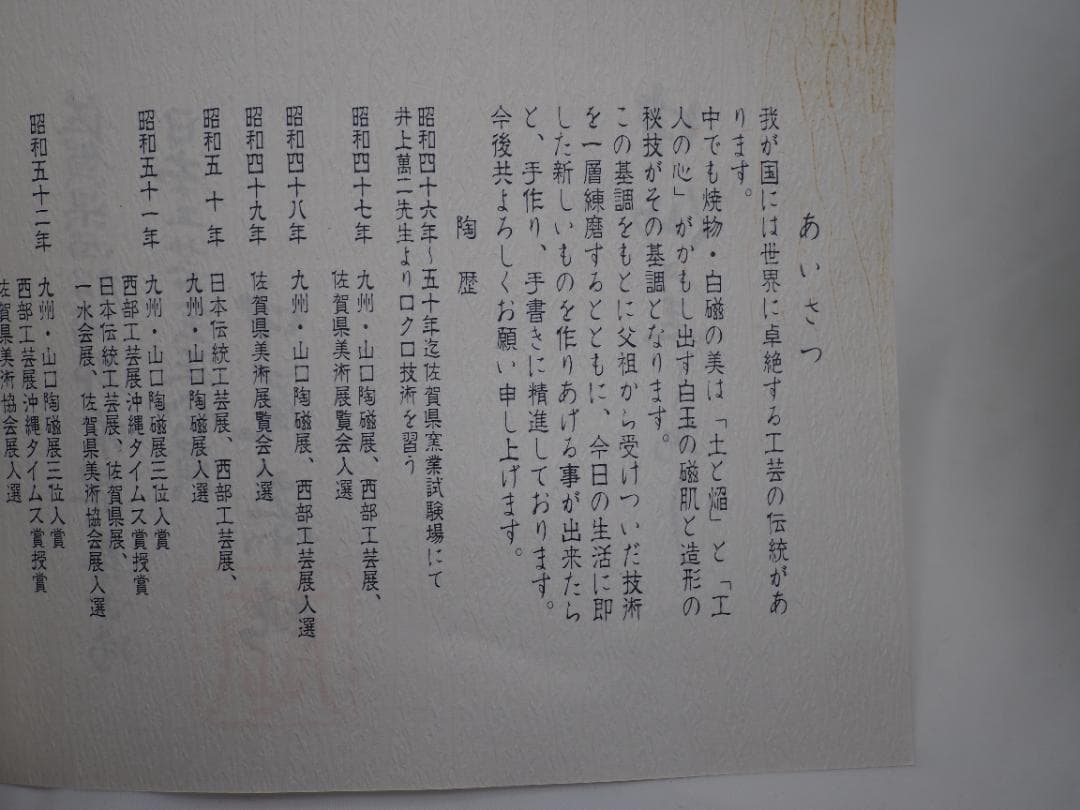 あいさつ
我が国には世界に卓絶する工芸の伝統があ
ります。
中でも焼物・白磁の美は「土と焔」と「工
人の心」がかもし出す白玉の磁肌と造形の
秘技がその基調となります。
この基調をもとに父祖から受けついだ技術
を一層練磨するとともに、今日の生活に即
した新しいものを作りあげる事が出来たら
と、手作り、手書きに精進しております。
今後共よろしくお願い申し上げます。
陶歴
昭和四十六年～五十年迄佐賀県窯業試験場にて
井上萬二先生よりロクロ技術を習う
昭和四十七年 九州・山口陶磁展、西部工芸展、
佐賀県美術展覧会入選
昭和四十八年 九州・山口陶磁展、西部工芸展入選
昭和四十九年 佐賀県美術展覧会入選
昭和五十年 日本伝統工芸展、西部工芸展、
九州・山口陶磁展入選
昭和五十一年 九州・山口陶磁展三位入賞
西部工芸展沖縄タイムス賞授賞
日本伝統工芸展、佐賀県展、
一水会展、佐賀県美術協会展入選
昭和五十二年 九州・山口陶磁展三位入賞
西部工芸展沖縄タイムス賞授賞
佐賀県美術協会展入選